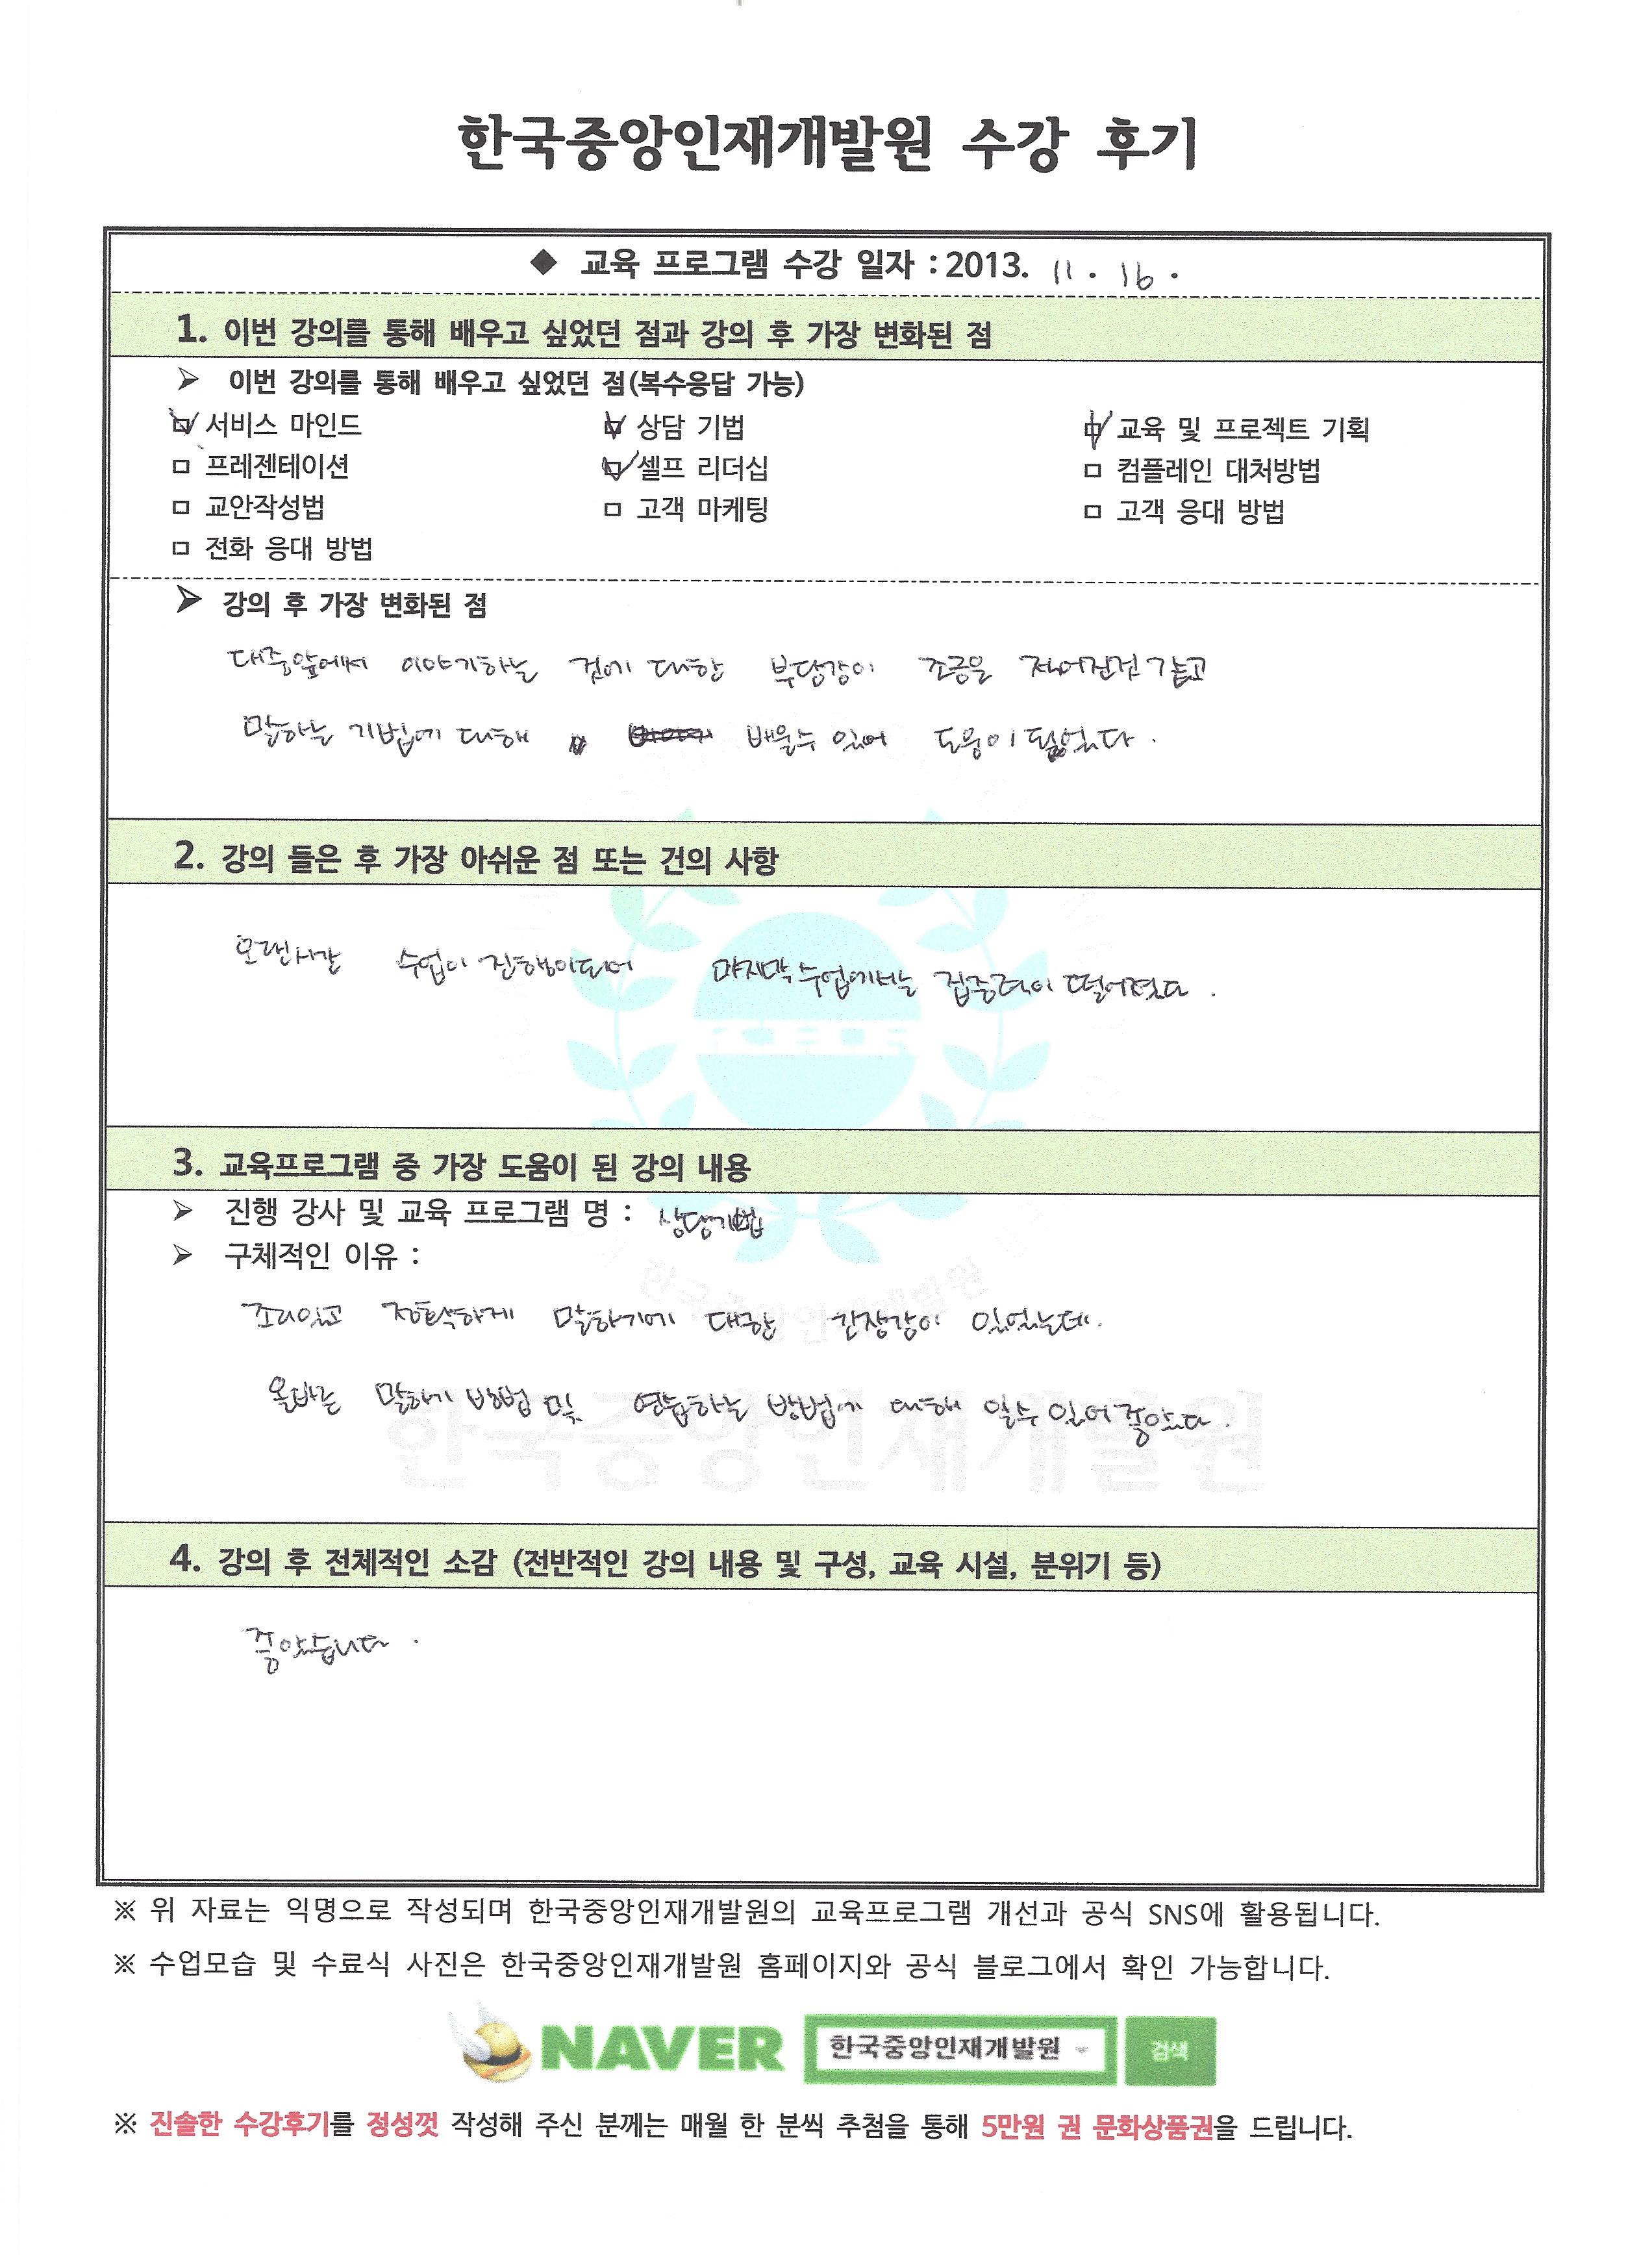 한국중앙인재개발원 수강 후기
◆ 교육 프로그램 수강 일자 : 2013. 11. 16.
1. 이번 강의를 통해 배우고 싶었던 점과 강의 후 가장 변화된 점
➢ 이번 강의를 통해 배우고 싶었던 점(복수응답 가능)
☑ 서비스 마인드 ☑ 상담 기법 ☑ 교육 및 프로젝트 기획
□ 프레젠테이션 ☑ 셀프 리더십 □ 컴플레인 대처방법
□ 교안작성법 □ 고객 마케팅 □ 고객 응대 방법
□ 전화 응대 방법
➢ 강의 후 가장 변화된 점
대중앞에서 이야기하는 것에 대한 부담감이 조금은 적어진것 같고
말하는 기법에 대해 배울수 있어 도움이 되었다.
2. 강의 들은 후 가장 아쉬운 점 또는 건의 사항
오랜시간 수업이 진행이되어 마지막 수업에서는 집중력이 떨어졌다.
3. 교육프로그램 중 가장 도움이 된 강의 내용
➢ 진행 강사 및 교육 프로그램 명 : 상담기법
➢ 구체적인 이유 :
조리있고 정확하게 말하기에 대한 긴장감이 있었는데.
올바른 말하기 방법 및 연습하는 방법에 대해 알수 있어 좋았다.
한국중앙인재개발원
4. 강의 후 전체적인 소감 (전반적인 강의 내용 및 구성, 교육 시설, 분위기 등)
좋았습니다.
※ 위 자료는 익명으로 작성되며 한국중앙인재개발원의 교육프로그램 개선과 공식 SNS에 활용됩니다.
※ 수업모습 및 수료식 사진은 한국중앙인재개발원 홈페이지와 공식 블로그에서 확인 가능합니다.
NAVER 한국중앙인재개발원 검색
※ 진솔한 수강후기를 정성껏 작성해 주신 분께는 매월 한 분씩 추첨을 통해 5만원 권 문화상품권을 드립니다.